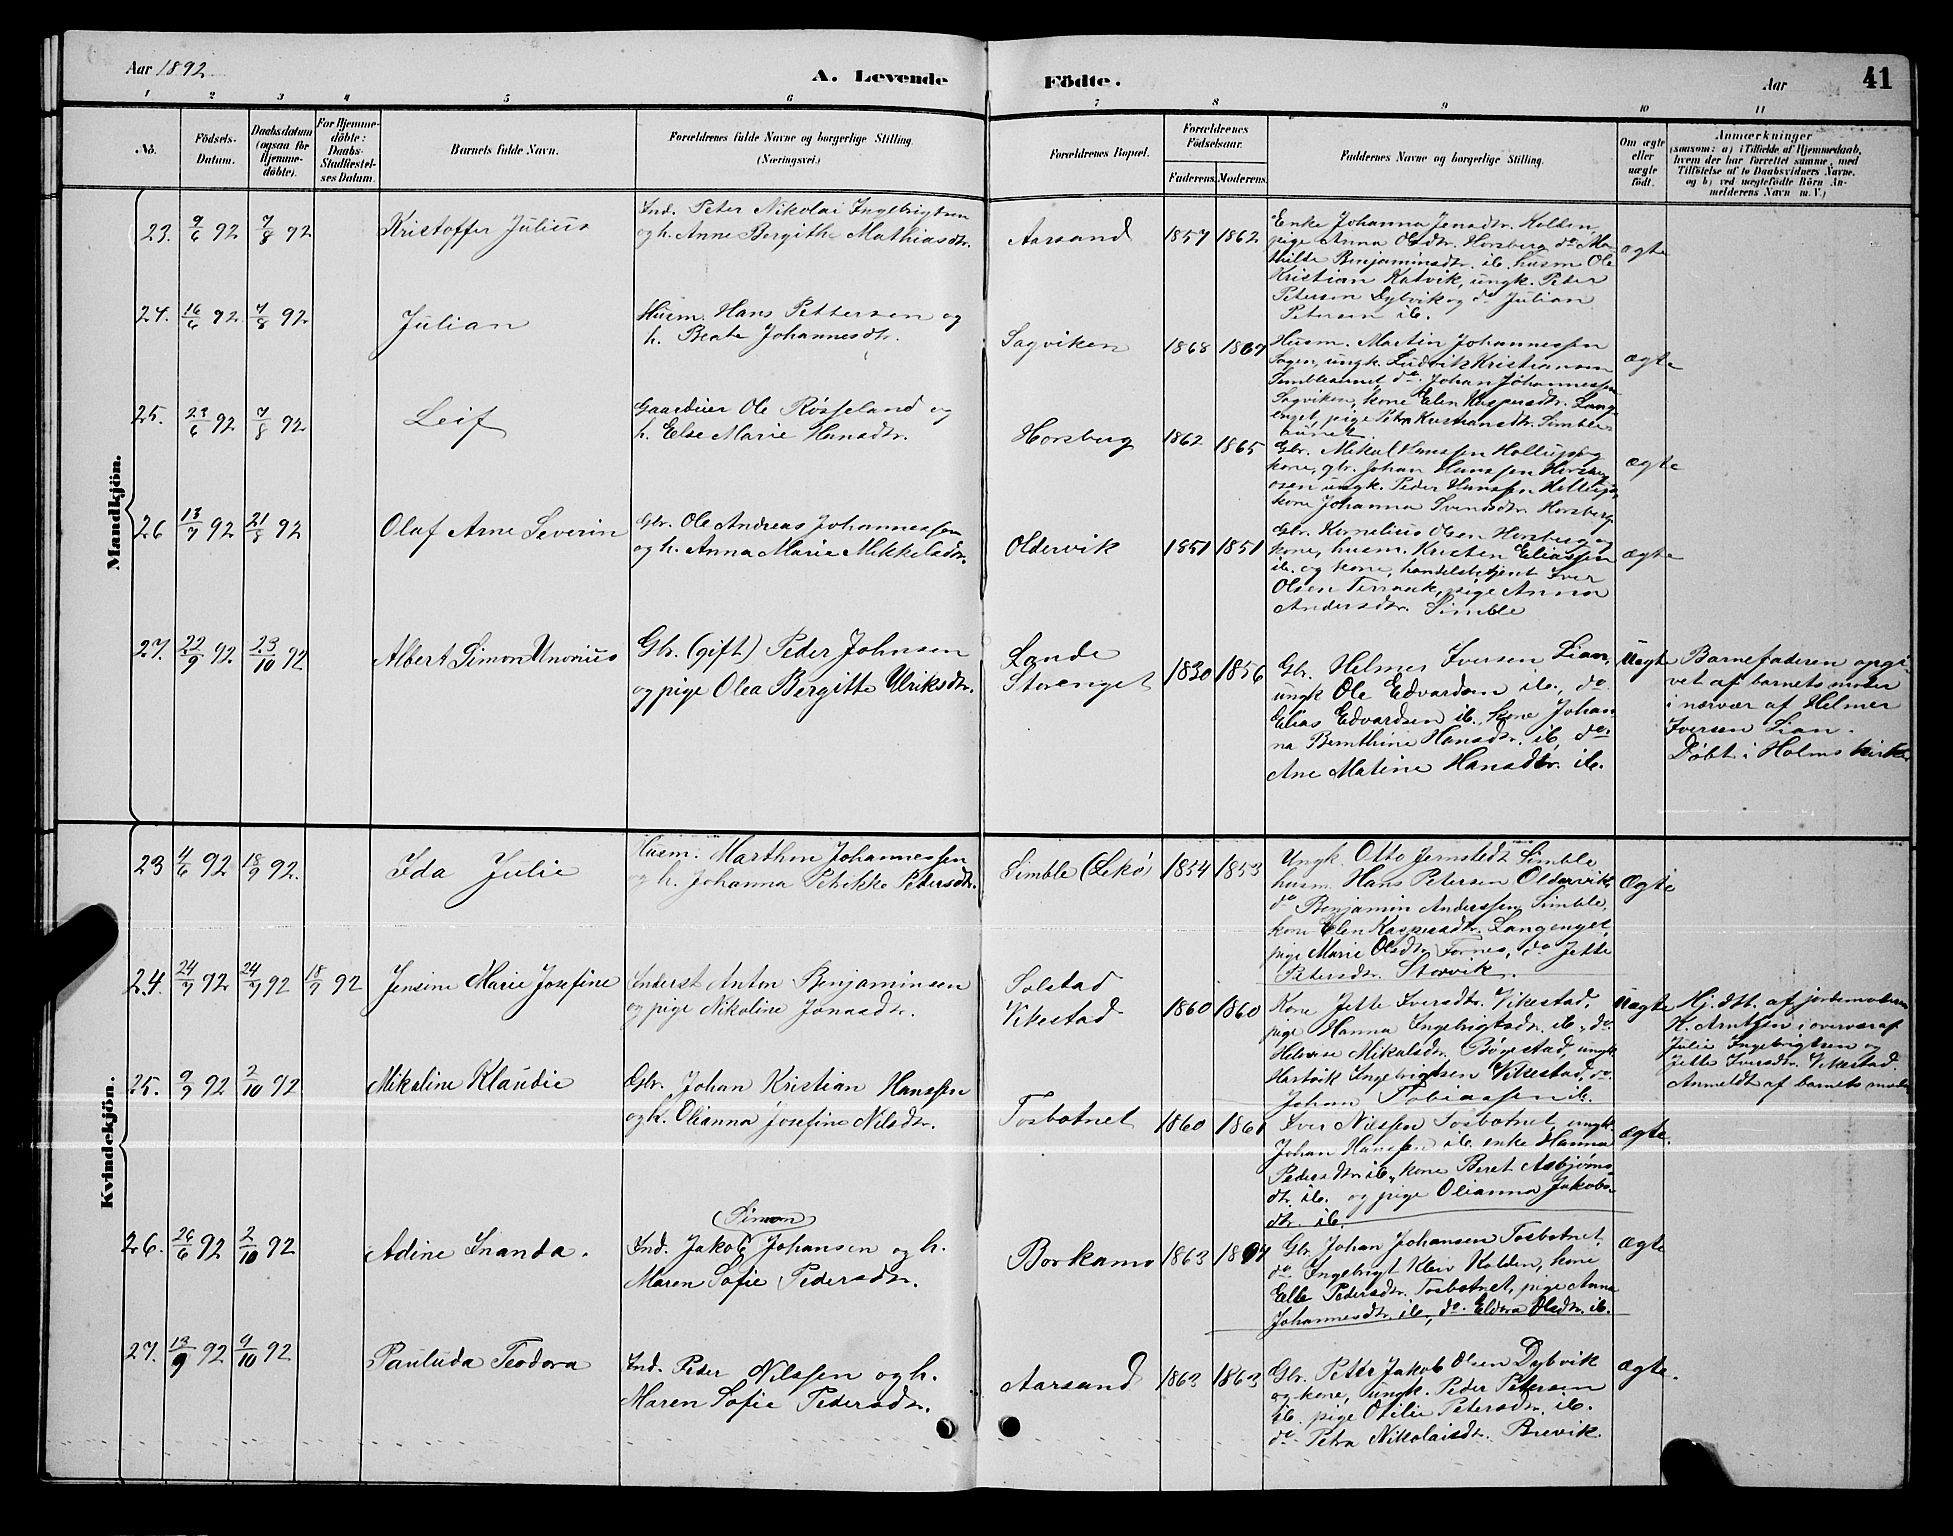 Aar 1892
A. Levende Födte.
Aar
41
1 2 3 4 5 6 7 8 9 10 11
No.
Födsels-Datum.
Daabsdatum (ogsaa for Hjemme-döbte).
For Hjemme-döbte: Daabs-Stadfæstel-ses Datum.
Barnets fulde Navn.
Forældrenes fulde Navne og borgerlige Stilling.
(Næringsvei.)
Forældrenes Bopæl.
Forældrenes Födselsaar.
Faderens. Moderens.
Faddernes Navne og borgerlig Stilling.
Om ægte eller uægte födt.
Anmærkninger
(saasom: a) i Tilfælde af Hjemmedaab,
hvem der har forrettet samme, med
Tilföielse af to Daabsvidners Navne.
og b) ved uægtefödte Börn An-
melderens Navn m. V.)
Mandkjön.
23. 9/6 92 7/8 92
Kristoffer Julius
Ind. Peter Nikolai Ingebrigtsen
og h. Anne Bergithe Mathiasdtr.
Aarsand
1857 1862
Enke Johanna Jensdtr. Kolden,
pige Anna Olsdtr. Horsberg do Ma-
thilde Benjaminsdtr. ib. husm Ole
Kristian Katvik, ungk. Peter
Petersen Dybvik og do Julian
Petersen ib.
ægte
24. 16/6 92. 7/8 92.
Julian
Husm. Hans Pettersen og
h. Beate Johannesdtr.
Sagviken
1868 1867
Husm. Martin Johannessen
Sagen, ungk. Ludvik Kristiansen
Simblesunnet, do. Johan Johannessen
Sagviken, kone Elen Kaspersdtr. Lang-
enget, pige Petra Kristiansdtr. Simble-
ægte
25. 23/6 92 7/8 92
Leif
Gaardeier Ole Røsseland og
h. Else Marie Hansdtr.
Horsberg
1862 1865
Gbr. Mikal Hanssen Holtup og
kone, gbr. Johan Hanssen Horsberg
osen ungk. Peder Hanssen
kone Johanna Svensdtr. Horsberg
ægte
26 13/7 92 21/8 92
Olaf Arne Severin
Gbr. Ole Andreas Johannessen
og h. Anna Marie Mikkelsdtr.
Oldervik
1851 1851
Gbr. Kornelius Olsen Horsberg og
kone, husm. Kristen Eliassen
ib. og kone, handelsbetjent Iver
Olsen Terraak, pige Anna
Andersdtr. Simble
ægte
27. 22/9 92. 23/10 92
Albert Simon Unonius
Gbr. (gift) Peder Johnsen
og pige Olea Bergitte Ulriksdtr.
Lande
Storenget
1830 1856
Gbr. Helmer Iversen Lian,
ungk Ole Edvardsen ib., do
Elias Edvardsen ib., kone Johan-
na Bernthine Hansdtr. ib, do.
Ane Matine Hansdtr. ib.
Uægte
Barnefaderen opgi-
vet af barnets moder
i nærvær af Helmer
Iversen Lian.
Døbt i Holms kirke
Kvindekjön.
23 4/6 92 18/9 92.
Ida Julie
Husm. Marthin Johannessen
og h. Johanna Petrikke Petersdtr.
Simble (Lekø)
1854 1853
Ungk. Otto Jernstedt Simble
husm. Hans Petersen Oldervik,
do Benjamin Anderssen Simble,
kone Elen Kaspersdtr. Langenget,
pige Marie Olsdtr. Fornes, do Jette
Petersdtr. Storvik.
Ægte
24. 24/7 92 24/7 92 18/9 92
Jensine Marie Josefine
Inderst Anton Benjaminsen
og pige Nikoline Jonasdtr.
Solstad
Vikestad
1860 1860
Kone Jette Iversdtr. Vikestad,
pige Hanna Ingebrigtsdtr. ib., do.
Helvise Mikalsdtr. Bøgestad, ungk.
Hartvik Ingebrigtsen Vikestad, do.
Johan Tobiassen ib.
Uægte
Hj. dbt. af jordemoderen
K. Arntsen i overvær af
Julie Ingebrigtsen og
Jette Iversdtr. Vikestad.
Anmeldt af barnets moder
25. 9/7 92 2/10 92
Mikaline Klaudie
Gbr. Johan Kristian Hanssen
og h. Olianna Josefine Nilsdtr.
Tosbotnet
1860 1861
Iver Nilssen Tosbotnet, ungk.
Johan Hanssen ib. enke Hanna
Pedersdtr. ib., kone Beret Asbjørns-
dtr. ib. og pige Olianna Jakobs-
dtr. ib.
ægte.
26. 26/6 92 2/10 92
Adine Inanda.
(Simon)
Ind. Jakob Johansen og h.
Maren Sofie Pedersdtr.
Borkamo
1863
Gbr. Johan Johansen Tosbotnet,
do Ingebrigt Kleiv Kolden, kone
Elle Pedersdtr. Tosbotnet, pige Anna
Johannesdtr. ib., do. Eldina Olsdtr. ib.
Ægte
27. 13/9 92 9/10 92
Pauluda Teodora
Ind. Peder Nilssen og h.
Maren Sofie Pedersdtr.
Aarsand
1863 1863
Gbr. Petter Jakob Olsen Dybvik
og kone, ungk. Peder Petersen
ib. pige Otilie Petersdtr. ib.
do. Petra Nikolaisdtr. Brevik.
Ægte.